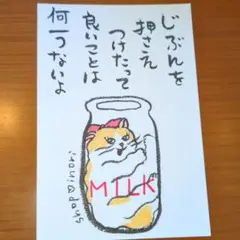 じぶんを
押さえ
つけたって
良いことは
何一つないよ
MILK